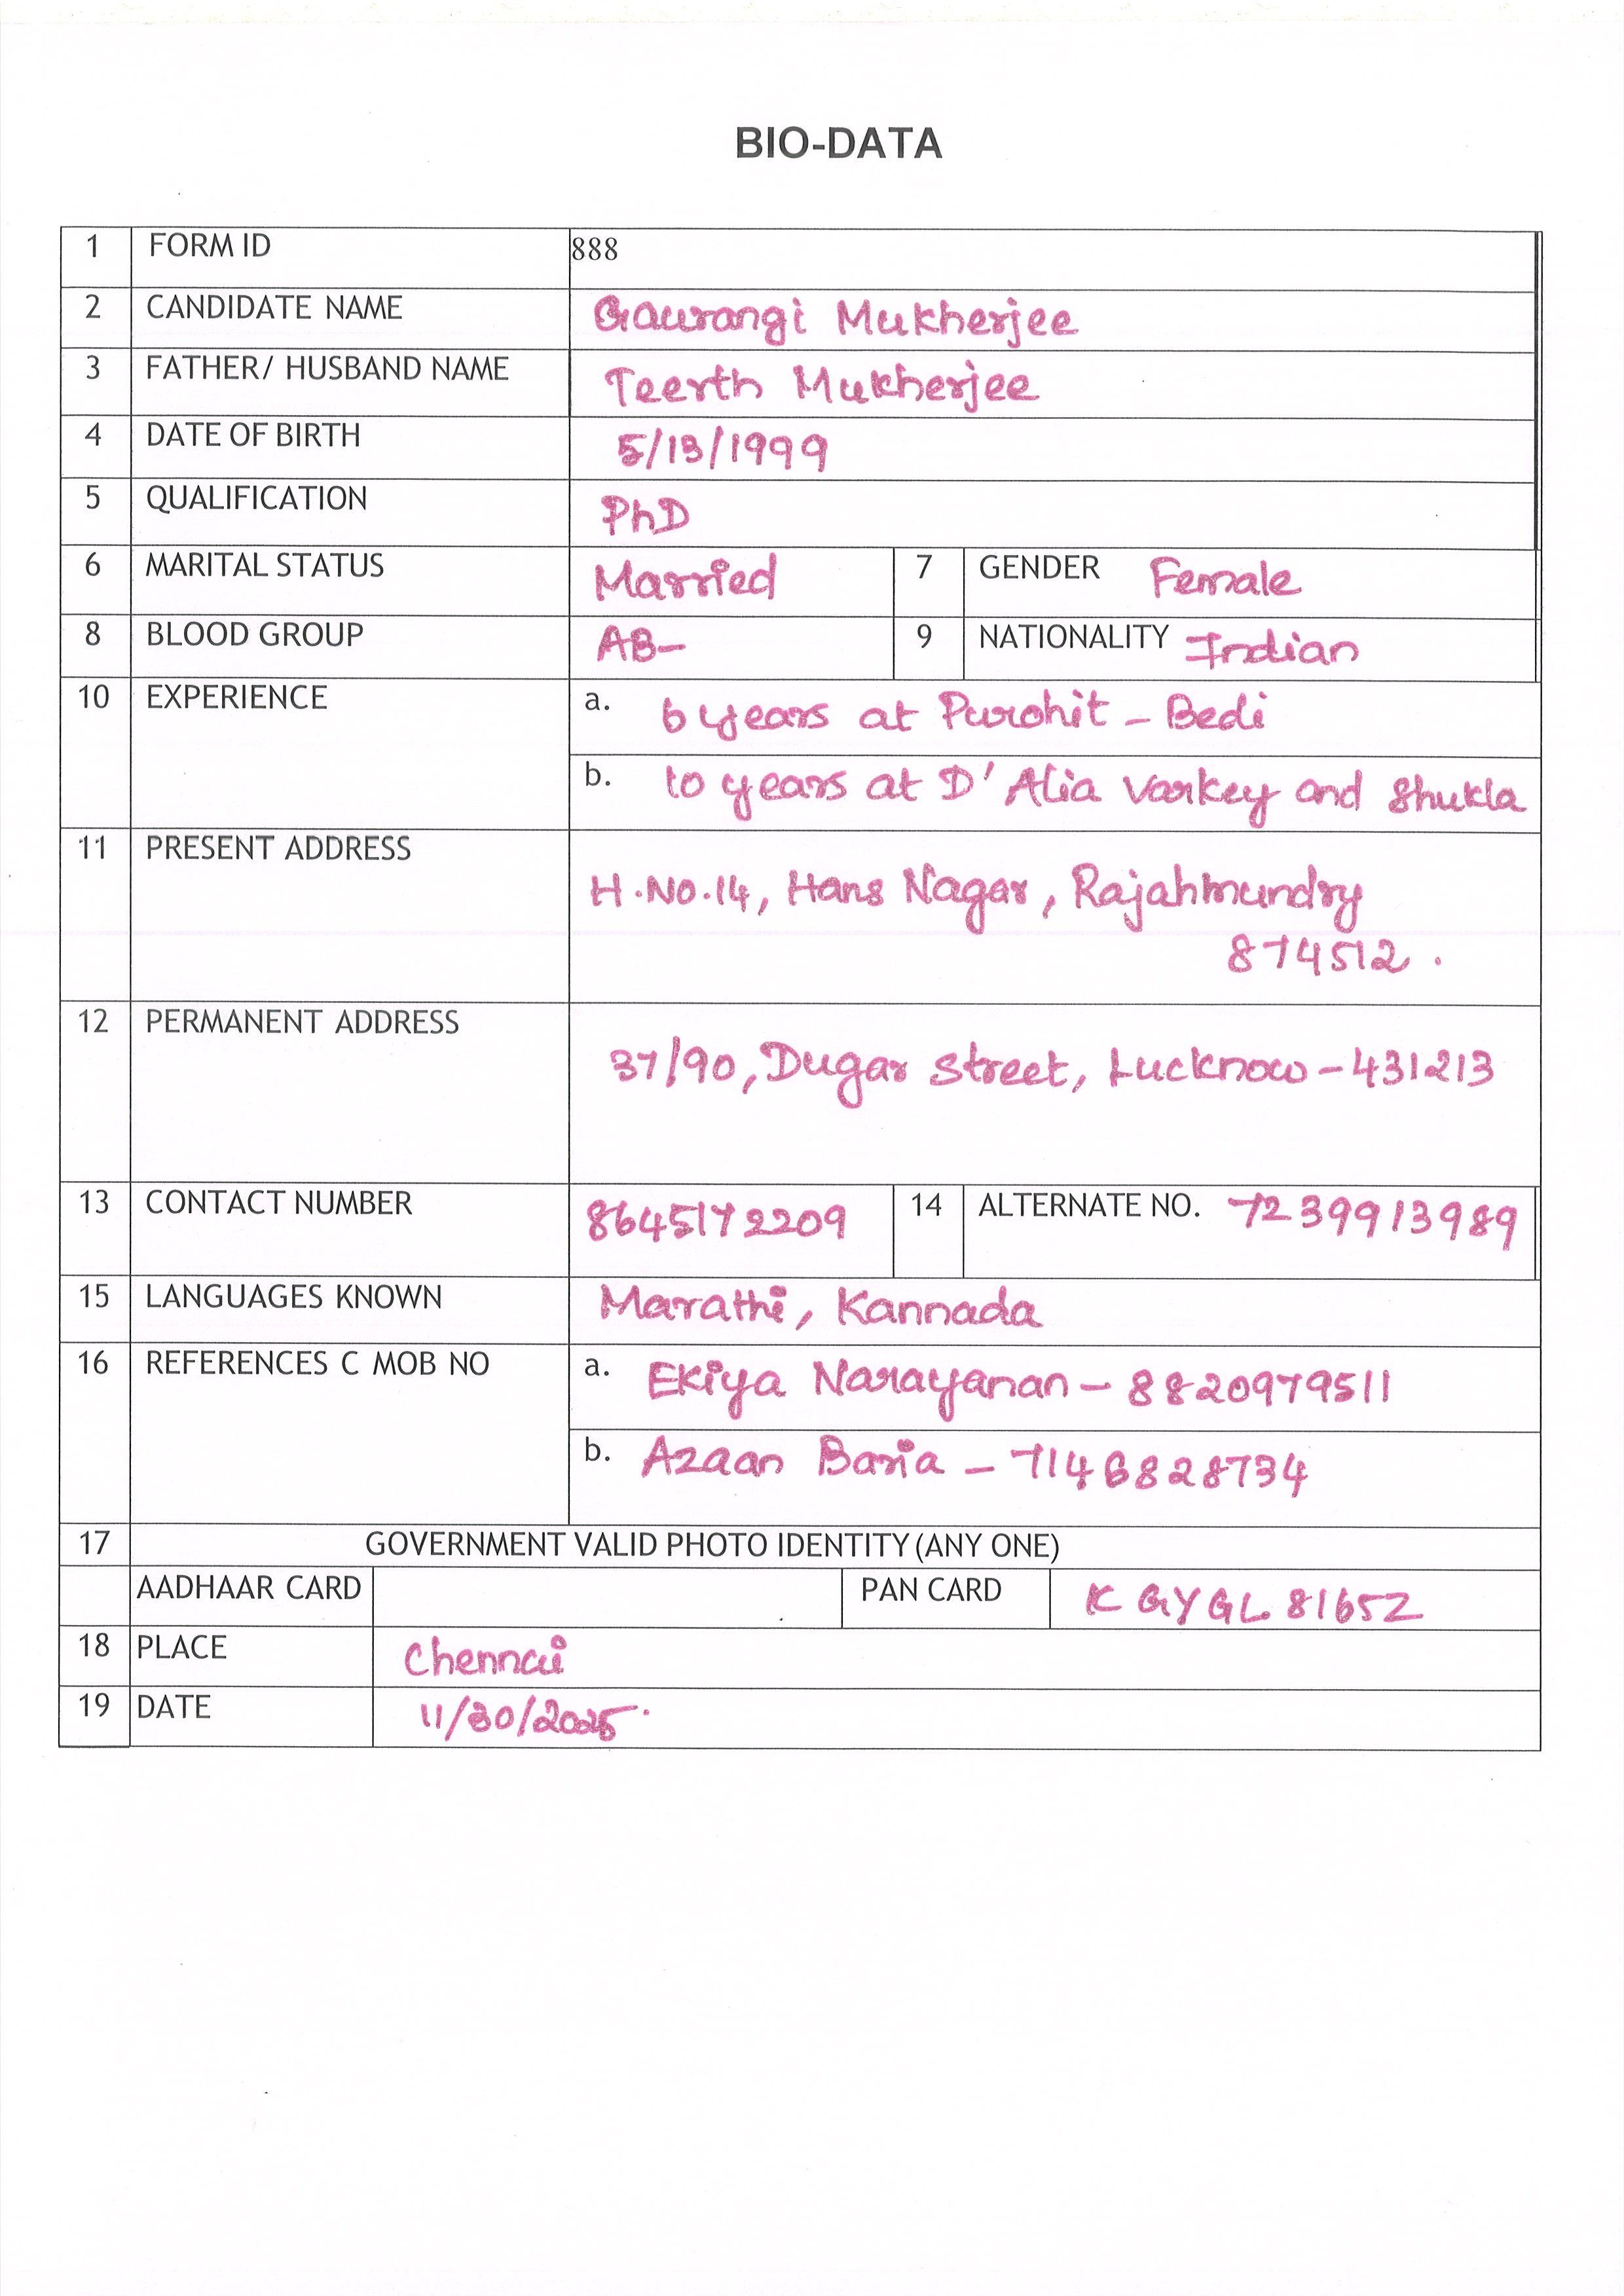 BIO-DATA
1 FORM ID 888
2 CANDIDATE NAME Gaurangi Mukherjee
3 FATHER/ HUSBAND NAME Teerth Mukherjee
4 DATE OF BIRTH 5/13/1999
5 QUALIFICATION PhD
6 MARITAL STATUS Married 7 GENDER Female
8 BLOOD GROUP AB- 9 NATIONALITY Indian
10 EXPERIENCE a. 6 years at Purohit - Bedi
b. 10 years at D' Alia Varkey and Shukla
11 PRESENT ADDRESS
H.No.14, Hans Nagar, Rajahmundry
874512.
12 PERMANENT ADDRESS
37/90, Dugar Street, Lucknow - 431213
13 CONTACT NUMBER 8645172209 14 ALTERNATE NO. 7239913989
15 LANGUAGES KNOWN Marathi, Kannada
16 REFERENCES C MOB NO a. Ekiya Narayanan - 8820979511
b. Azaan Baria - 7146828734
17 GOVERNMENT VALID PHOTO IDENTITY (ANY ONE)
AADHAAR CARD PAN CARD KGYGL8165Z
18 PLACE Chennai
19 DATE 11/30/2025.